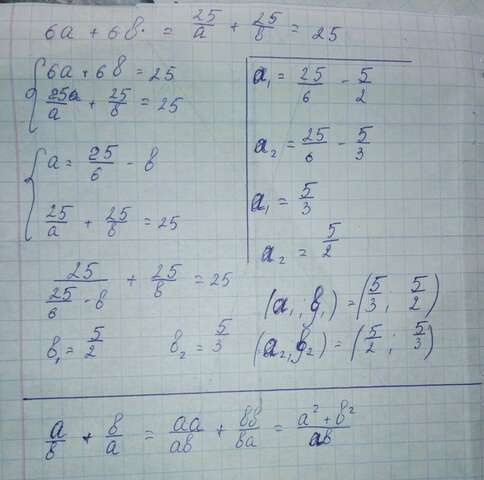 6a + 6b = 25/a + 25/b = 25
{ 6a + 6b = 25
25a/a + 25/b = 25
{ a = 25/6 - b
25/a + 25/b = 25
25/(25/6 - b) + 25/b = 25
b₁ = 5/2 b₂ = 5/3
a₁ = 25/6 - 5/2
a₂ = 25/6 - 5/3
a₁ = 5/3
a₂ = 5/2
(a₁; b₁) = (5/3; 5/2)
(a₂; b₂) = (5/2; 5/3)
a/b + b/a = aa/ab + bb/ba = (a² + b²)/ab